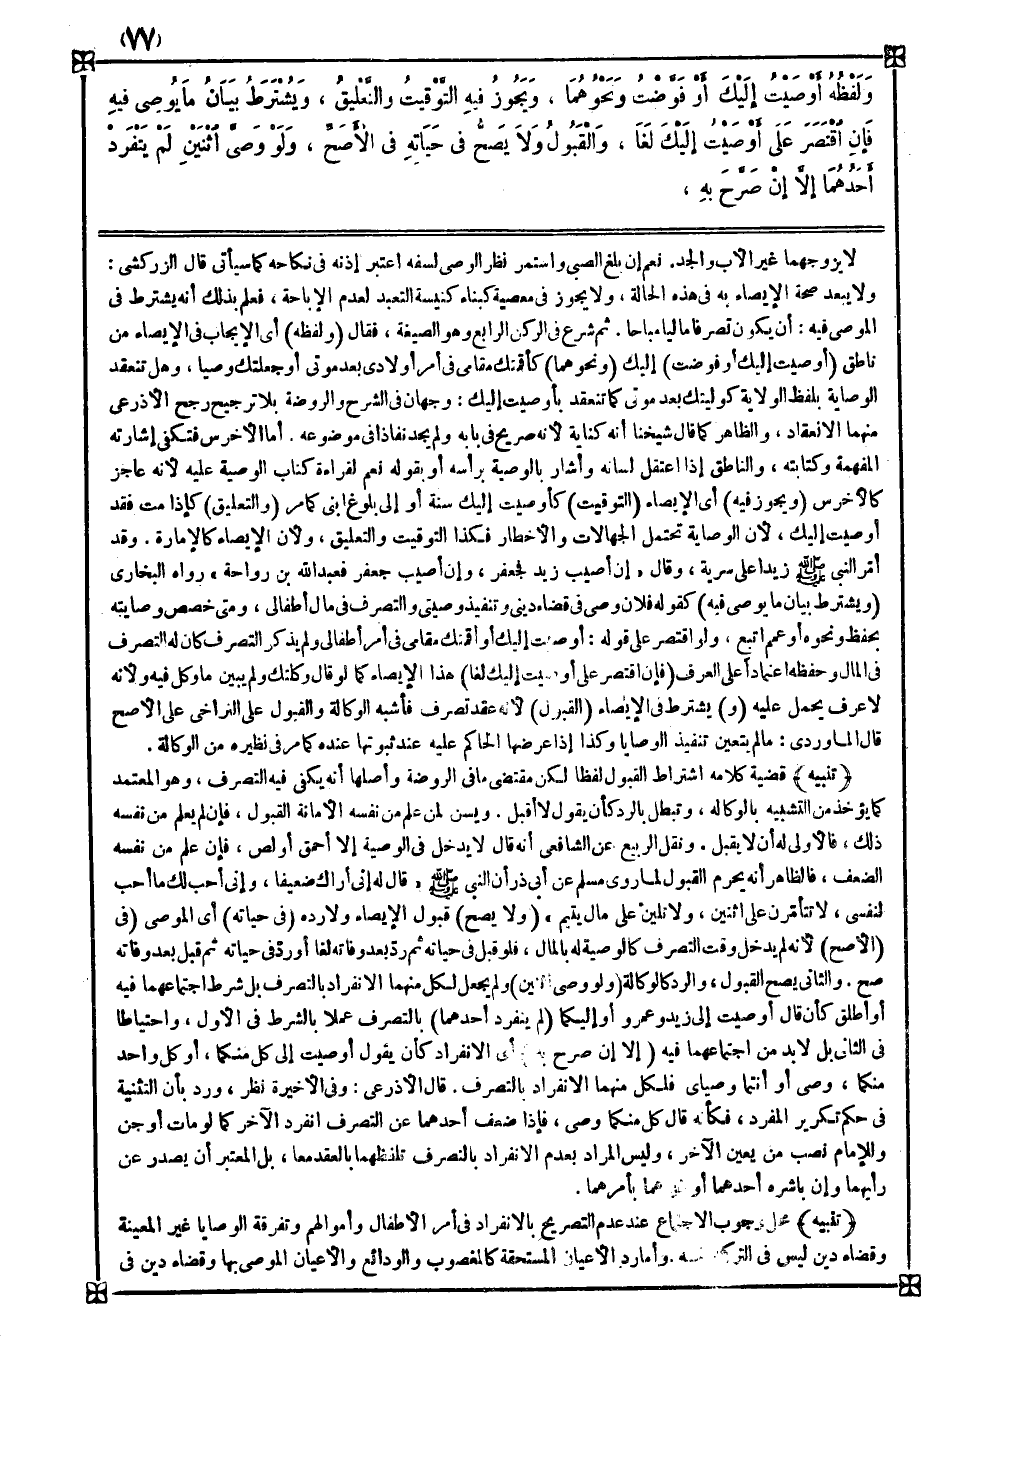 (٧٧)
وَلَفْظُهُ أَوْصَيْتُ إِلَيْكَ أَوْ فَوَّضْتُ وَنَحْوُهُمَا ، وَيَجُوزُ فِيهِ التَّوْقِيتُ وَالتَّعْلِيقُ ، وَيُشْتَرَطُ بَيَانُ مَا يُوصِى فِيهِ
فَإِنِ اقْتَصَرَ عَلَى أَوْصَيْتُ إِلَيْكَ لَغَا ، وَالْقَبُولُ وَلاَ يَصِحُّ فِى حَيَاتِهِ فِى الْأَصَحِّ ، وَلَوْ وَصَّى اثْنَيْنِ لَمْ يَنْفَرِدْ
أَحَدُهُمَا إِلاَّ إِنْ صَرَّحَ بِهِ ،
لا يزوجهما غير الأب والجد. نعم إن بلغ الصبى واستمر نظر الوصى لسفه اعتبر إذنه فى نكاحه كما سيأتى قال الزركشى :
ولا يبعد صحة الإيصاء به فى هذه الحالة ، ولا يجوز فى معصية كبناء كنيسة التعبد لعدم الإباحة ، فعلم بذلك أنه يشترط فى
الموصى فيه : أن يكون تصرفا ماليا مباحا . ثم شرع فى الركن الرابع وهو الصيغة ، فقال (ولفظه) أى الإيجاب فى الإيصاء من
ناطق (أوصيت إليك أو فوضت) إليك (ونحوهما) كأقمتك مقامى فى أمر أولادى بعد موتى أو جعلتك وصيا ، وهل تنعقد
الوصاية بلفظ الولاية كوليتك بعد موتى كما تنعقد بأوصيت إليك : وجهان فى الشرح والروضة بلا ترجيح رجح الأذرعى
منهما الانعقاد ، والظاهر كما قال شيخنا أنه كناية لأنه صريح فى بابه ولم يجد نفاذا فى موضوعه . أما الأخرس فتكفى إشارته
المفهمة وكتابته ، والناطق إذا اعتقل لسانه وأشار بالوصية برأسه أو بقوله نعم لقراءة كتاب الوصية عليه لأنه عاجز
كالأخرس (ويجوز فيه) أى الإيصاء (التوقيت) كأوصيت إليك سنة أو إلى بلوغ ابنى كمامر (والتعليق) كإذا مت فقد
أوصيت إليك ، لأن الوصاية تحتمل الجهالات والأخطار فكذا التوقيت والتعليق ، ولأن الإيصاء كالإمارة . وقد
أقر النبى ﷺ زيدا على سرية ، وقال « إن أصيب زيد فجعفر ، وإن أصيب جعفر فعبدالله بن رواحة » رواه البخارى
(ويشترط بيان ما يوصى فيه) كقوله فلان وصى فى قضاء دينى وتنفيذ وصيتى والتصرف فى مال أطفالى ، ومتى خصص وصايته
بحفظ ونحوه أو عمم اتبع ، ولو اقتصر على قوله : أوصيت إليك أو أقمتك مقامى فى أمر أطفالى ولم يذكر التصرف كان له التصرف
فى المال وحفظه اعتمادا على العرف (فإن اقتصر على أوصيت إليك لغا) هذا الإيصاء كما لو قال وكلتك ولم يبين ما وكل فيه ولأنه
لا عرف يحمل عليه (و) يشترط فى الإيصاء (القبول) لأنه عقد تصرف فأشبه الوكالة والقبول على التراخى على الأصح
قال الماوردى : ما لم يتعين تنفيذ الوصايا وكذا إذا عرضها الحاكم عليه عند ثبوتها عنده كما مر فى نظيره من الوكالة .
﴿ تنبيه ﴾ قضية كلامه اشتراط القبول لفظا لكن مقتضى ما فى الروضة وأصلها أنه يكفى فيه التصرف ، وهو المعتمد
كما يؤخذ من التشبيه بالوكالة ، وتبطل بالرد كأن يقول لا أقبل . ويسن لمن علم من نفسه الأمانة القبول ، فإن لم يعلم من نفسه
ذلك ، فالأولى له أن لا يقبل . ونقل الربيع عن الشافعى أنه قال لا يدخل فى الوصية إلا أحمق أو لص ، فإن علم من نفسه
الضعف ، فالظاهر أنه يحرم القبول لما روى مسلم عن أبى ذر أن النبى ﷺ « قال له إنى أراك ضعيفا ، وإنى أحب لك ما أحب
لنفسى ، لا تتأمرن على اثنين ، ولا تلين على مال يتيم » (ولا يصح) قبول الإيصاء ولا رده (فى حياته) أى الموصى (فى
الأصح) لأنه لم يدخل وقت التصرف كالوصية له بالمال ، فلو قبل فى حياته ثم رد بعد وفاته لغا أو رد فى حياته ثم قبل بعد وفاته
صح . والثانى يصح القبول ، والرد كالوكالة (ولو وصى اثنين) ولم يجعل لكل منهما الانفراد بالتصرف بل شرط اجتماعهما فيه
أو أطلق كأن قال أوصيت إلى زيد وعمرو أو إليكما (لم ينفرد أحدهما) بالتصرف عملا بالشرط فى الأول ، واحتياطا
فى الثانى بل لابد من اجتماعهما فيه ( إلا إن صرح به ) أى الانفراد كأن يقول أوصيت إلى كل منكما ، أو كل واحد
منكما ، وصى أو أنتما وصياى فلكل منهما الانفراد بالتصرف . قال الأذرعى : وفى الأخيرة نظر ، ورد بأن التثنية
فى حكم تكرير المفرد ، فكأنه قال كل منكما وصى ، فإذا ضعف أحدهما عن التصرف انفرد الآخر كما لو مات أو جن
وللإمام نصب من يعين الآخر ، وليس المراد بعدم الانفراد بالتصرف تلفظهما بالعقد معا ، بل المعتبر أن يصدر عن
رأيهما وإن باشره أحدهما أو غيرهما بأمرهما .
﴿ تنبيه ﴾ محل وجوب الاجتماع عند عدم التصريح بالانفراد فى أمر الأطفال وأموالهم وتفرقة الوصايا غير المعينة
وقضاء دين ليس فى التركة جنسه . وأما رد الأعيان المستحقة كالمغصوب والودائع والأعيان الموصى بها وقضاء دين فى